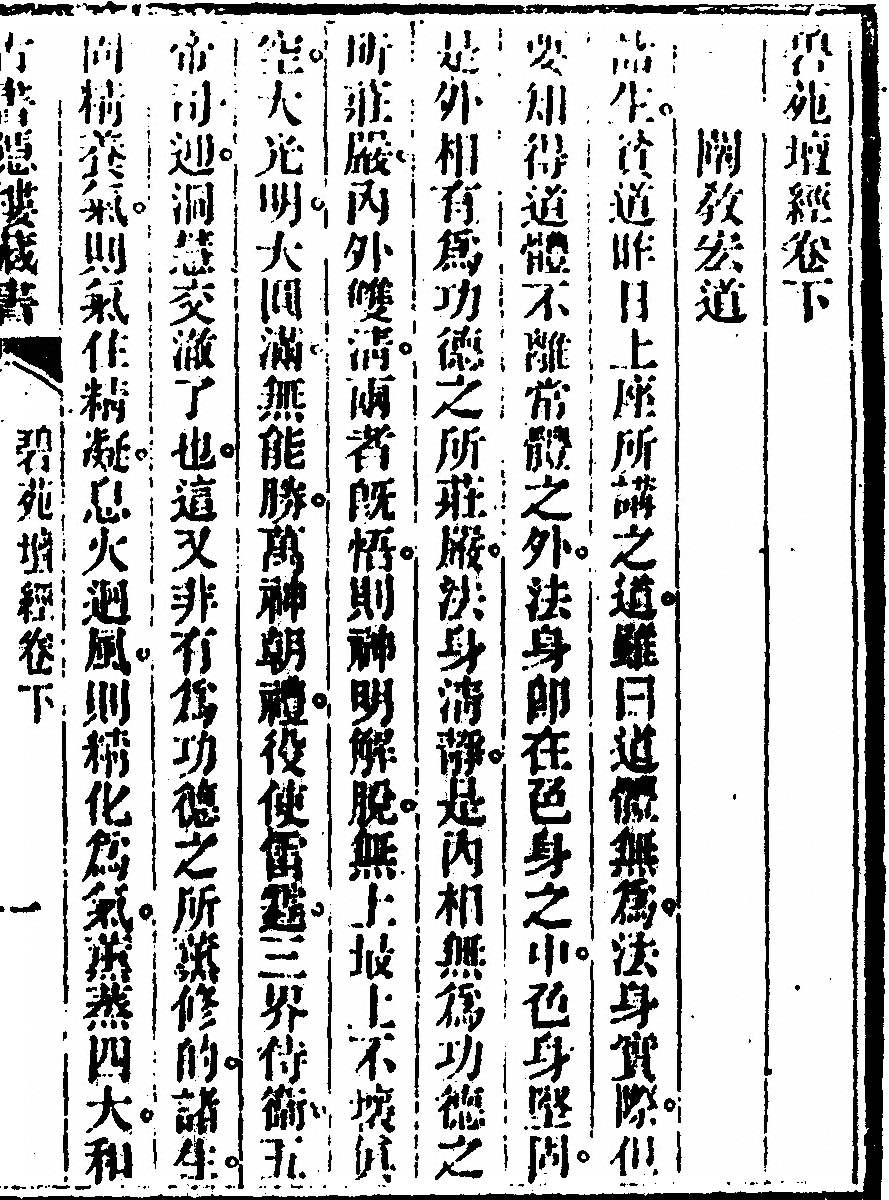 碧苑壇經卷下
闡教宏道
諸生貧道昨日上座所講之道雖曰道體無為法身實際但
要知得道體不離常體之外法身即在色身之中色身堅固
是外相有為功德之所莊嚴法身清靜是內相無為功德之
所莊嚴內外雙清兩者既悟則神明解脫無上最上不壞真
空大光明大圓滿無能勝萬神朝禮役使雷霆三界侍衛五
帝司迎洞慧交澈了也這又非有為功德之所薰修的諸生
同精養氣則氣住精凝息火迴風則精化為氣薰蒸四大和
古書隱樓藏書
碧苑壇經卷下
一